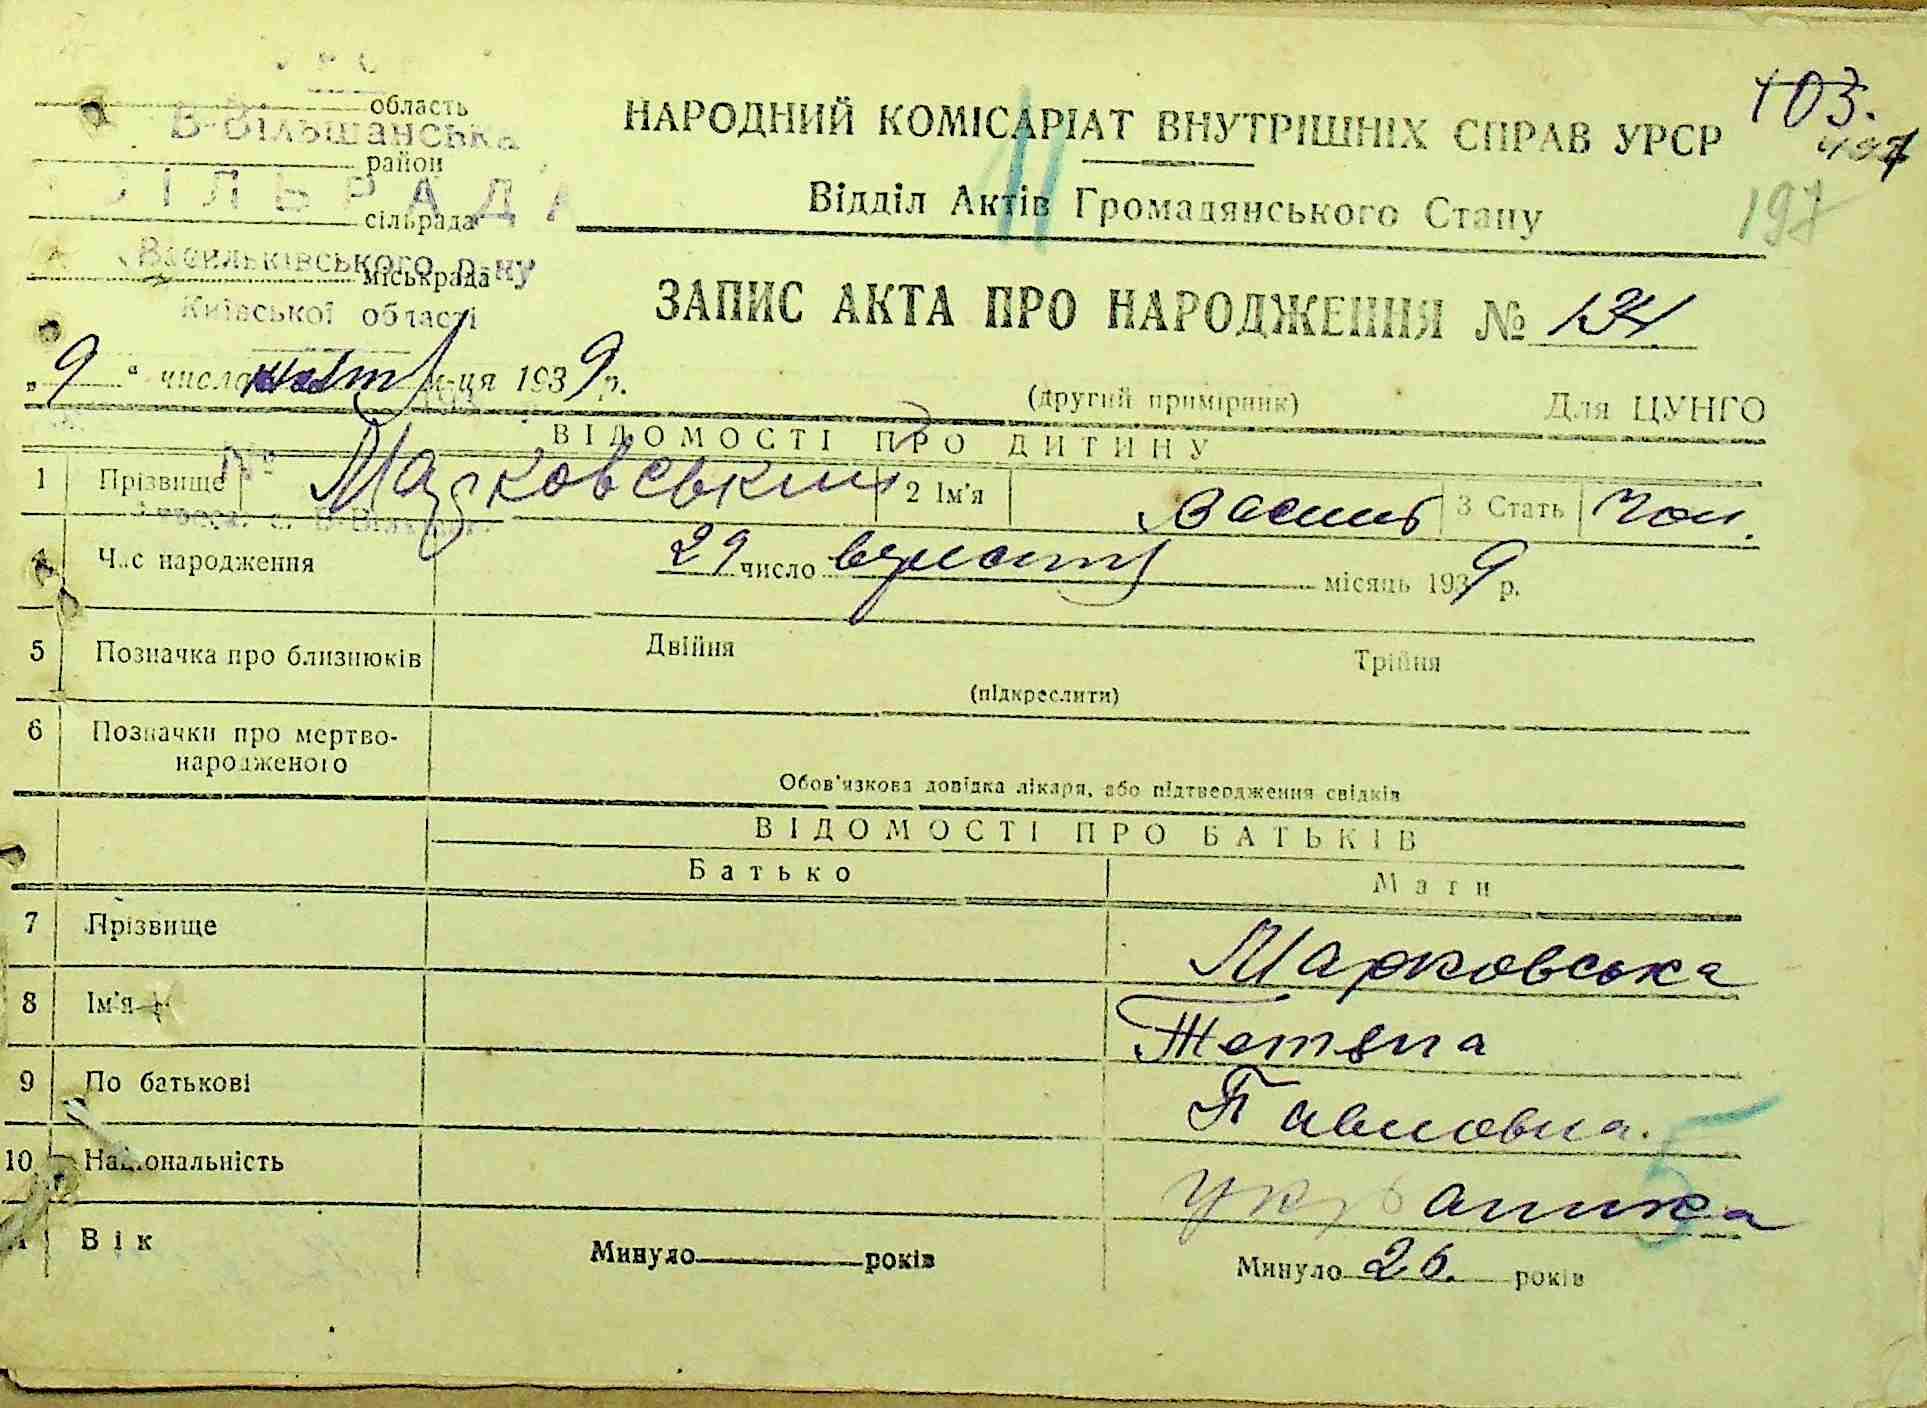 УРСР
область
В-Вільшанська
район
СІЛЬРАДА
сільрада
Васильківського р-ну
міськрада
Київської області
НАРОДНИЙ КОМІСАРІАТ ВНУТРІШНІХ СПРАВ УРСР
103.
197
Відділ Актів Громадянського Стану
11
ЗАПИС АКТА ПРО НАРОДЖЕННЯ № 134
„9“ числа жовт м-ця 1939 р.
(другий примірник)
Для ЦУНГО
ВІДОМОСТІ ПРО ДИТИНУ
1 Прізвище Марковський 2 Ім'я Василь 3 Стать чол.
№
4 Час народження 29 число вересня місяць 1939 р.
5 Позначка про близнюків Двійня Трійня
(підкреслити)
6 Позначки про мертво-
народженого
Обов'язкова довідка лікаря, або підтвердження свідків
ВІДОМОСТІ ПРО БАТЬКІВ
Батько Мати
7 Прізвище Марковська
8 Ім'я Тетяна
9 По батькові Павловна.
10 Національність українка
5
11 Вік Минуло років Минуло 26. років